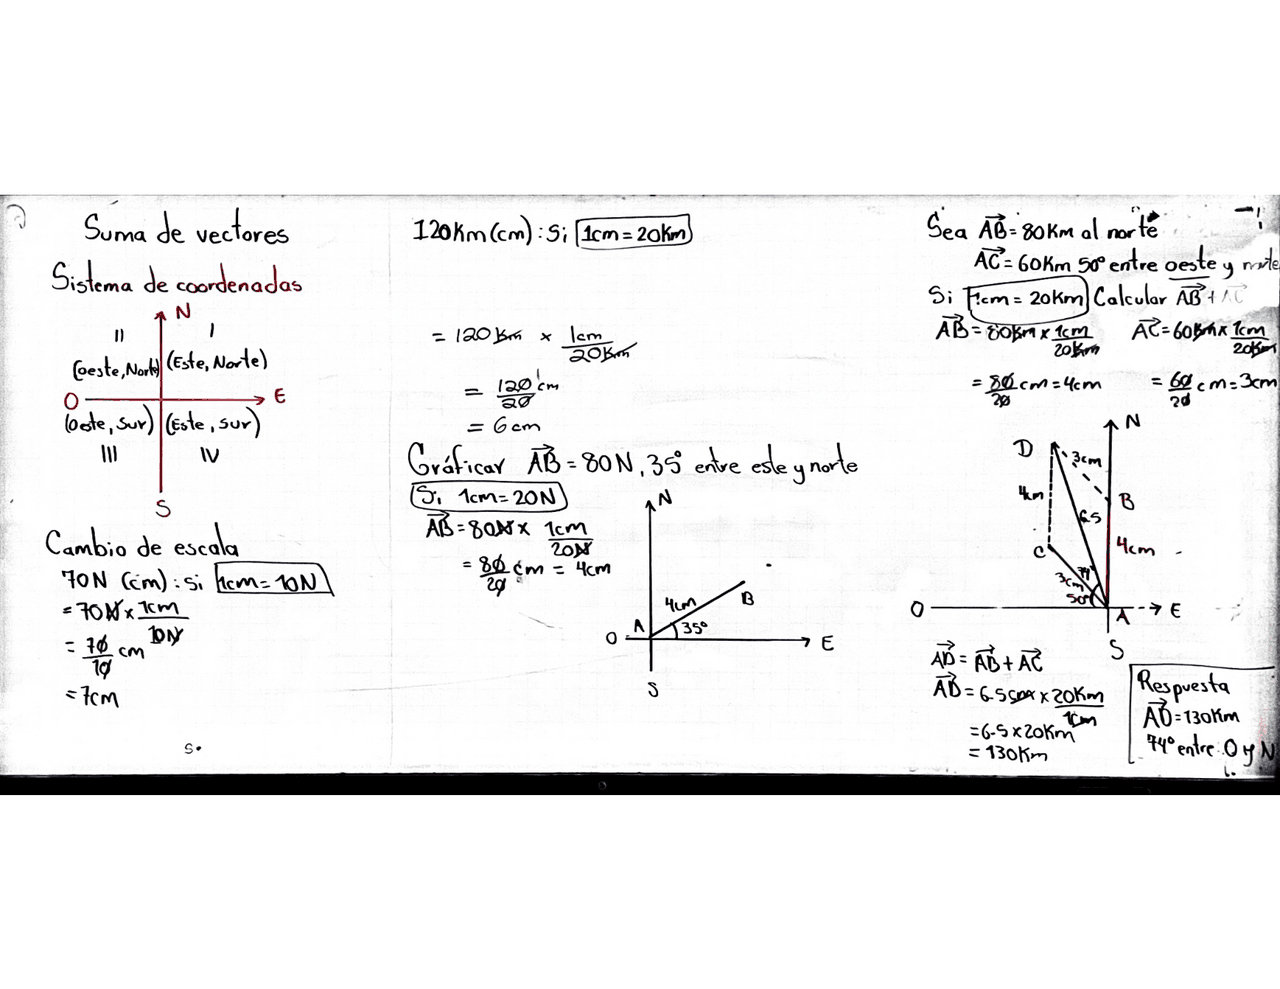 Suma de vectores
Sistema de coordenadas
N
II I
(oeste, Norte) (Este, Norte)
O E
(Oeste, Sur) (Este, sur)
III IV
S
Cambio de escala
70N (cm): Si 1cm = 10N
= 70N x 1cm/10N
= 70/10 cm
= 7cm
5.
120Km (cm): Si 1cm = 20Km
= 120Km x 1cm/20Km
= 120/20 cm
= 6cm
Gráficar AB = 80N, 35° entre este y norte
Si 1cm = 20N
AB = 80N x 1cm/20N
= 80/20 cm = 4cm
N
4cm B
A 35°
O E
S
Sea AB = 80Km al norte
AC = 60Km 50° entre oeste y norte
Si 1cm = 20Km Calcular AB + AC
AB = 80Km x 1cm/20Km AC = 60Km x 1cm/20Km
= 80/20 cm = 4cm = 60/20 cm = 3cm
N
D 3cm
4cm B
6.5
C 4cm
74°
3cm
50°
O A E
S
AD = AB + AC
AD = 6.5cm x 20Km/1cm
= 6.5 x 20Km
= 130Km
Respuesta
AD = 130Km
74° entre O y N